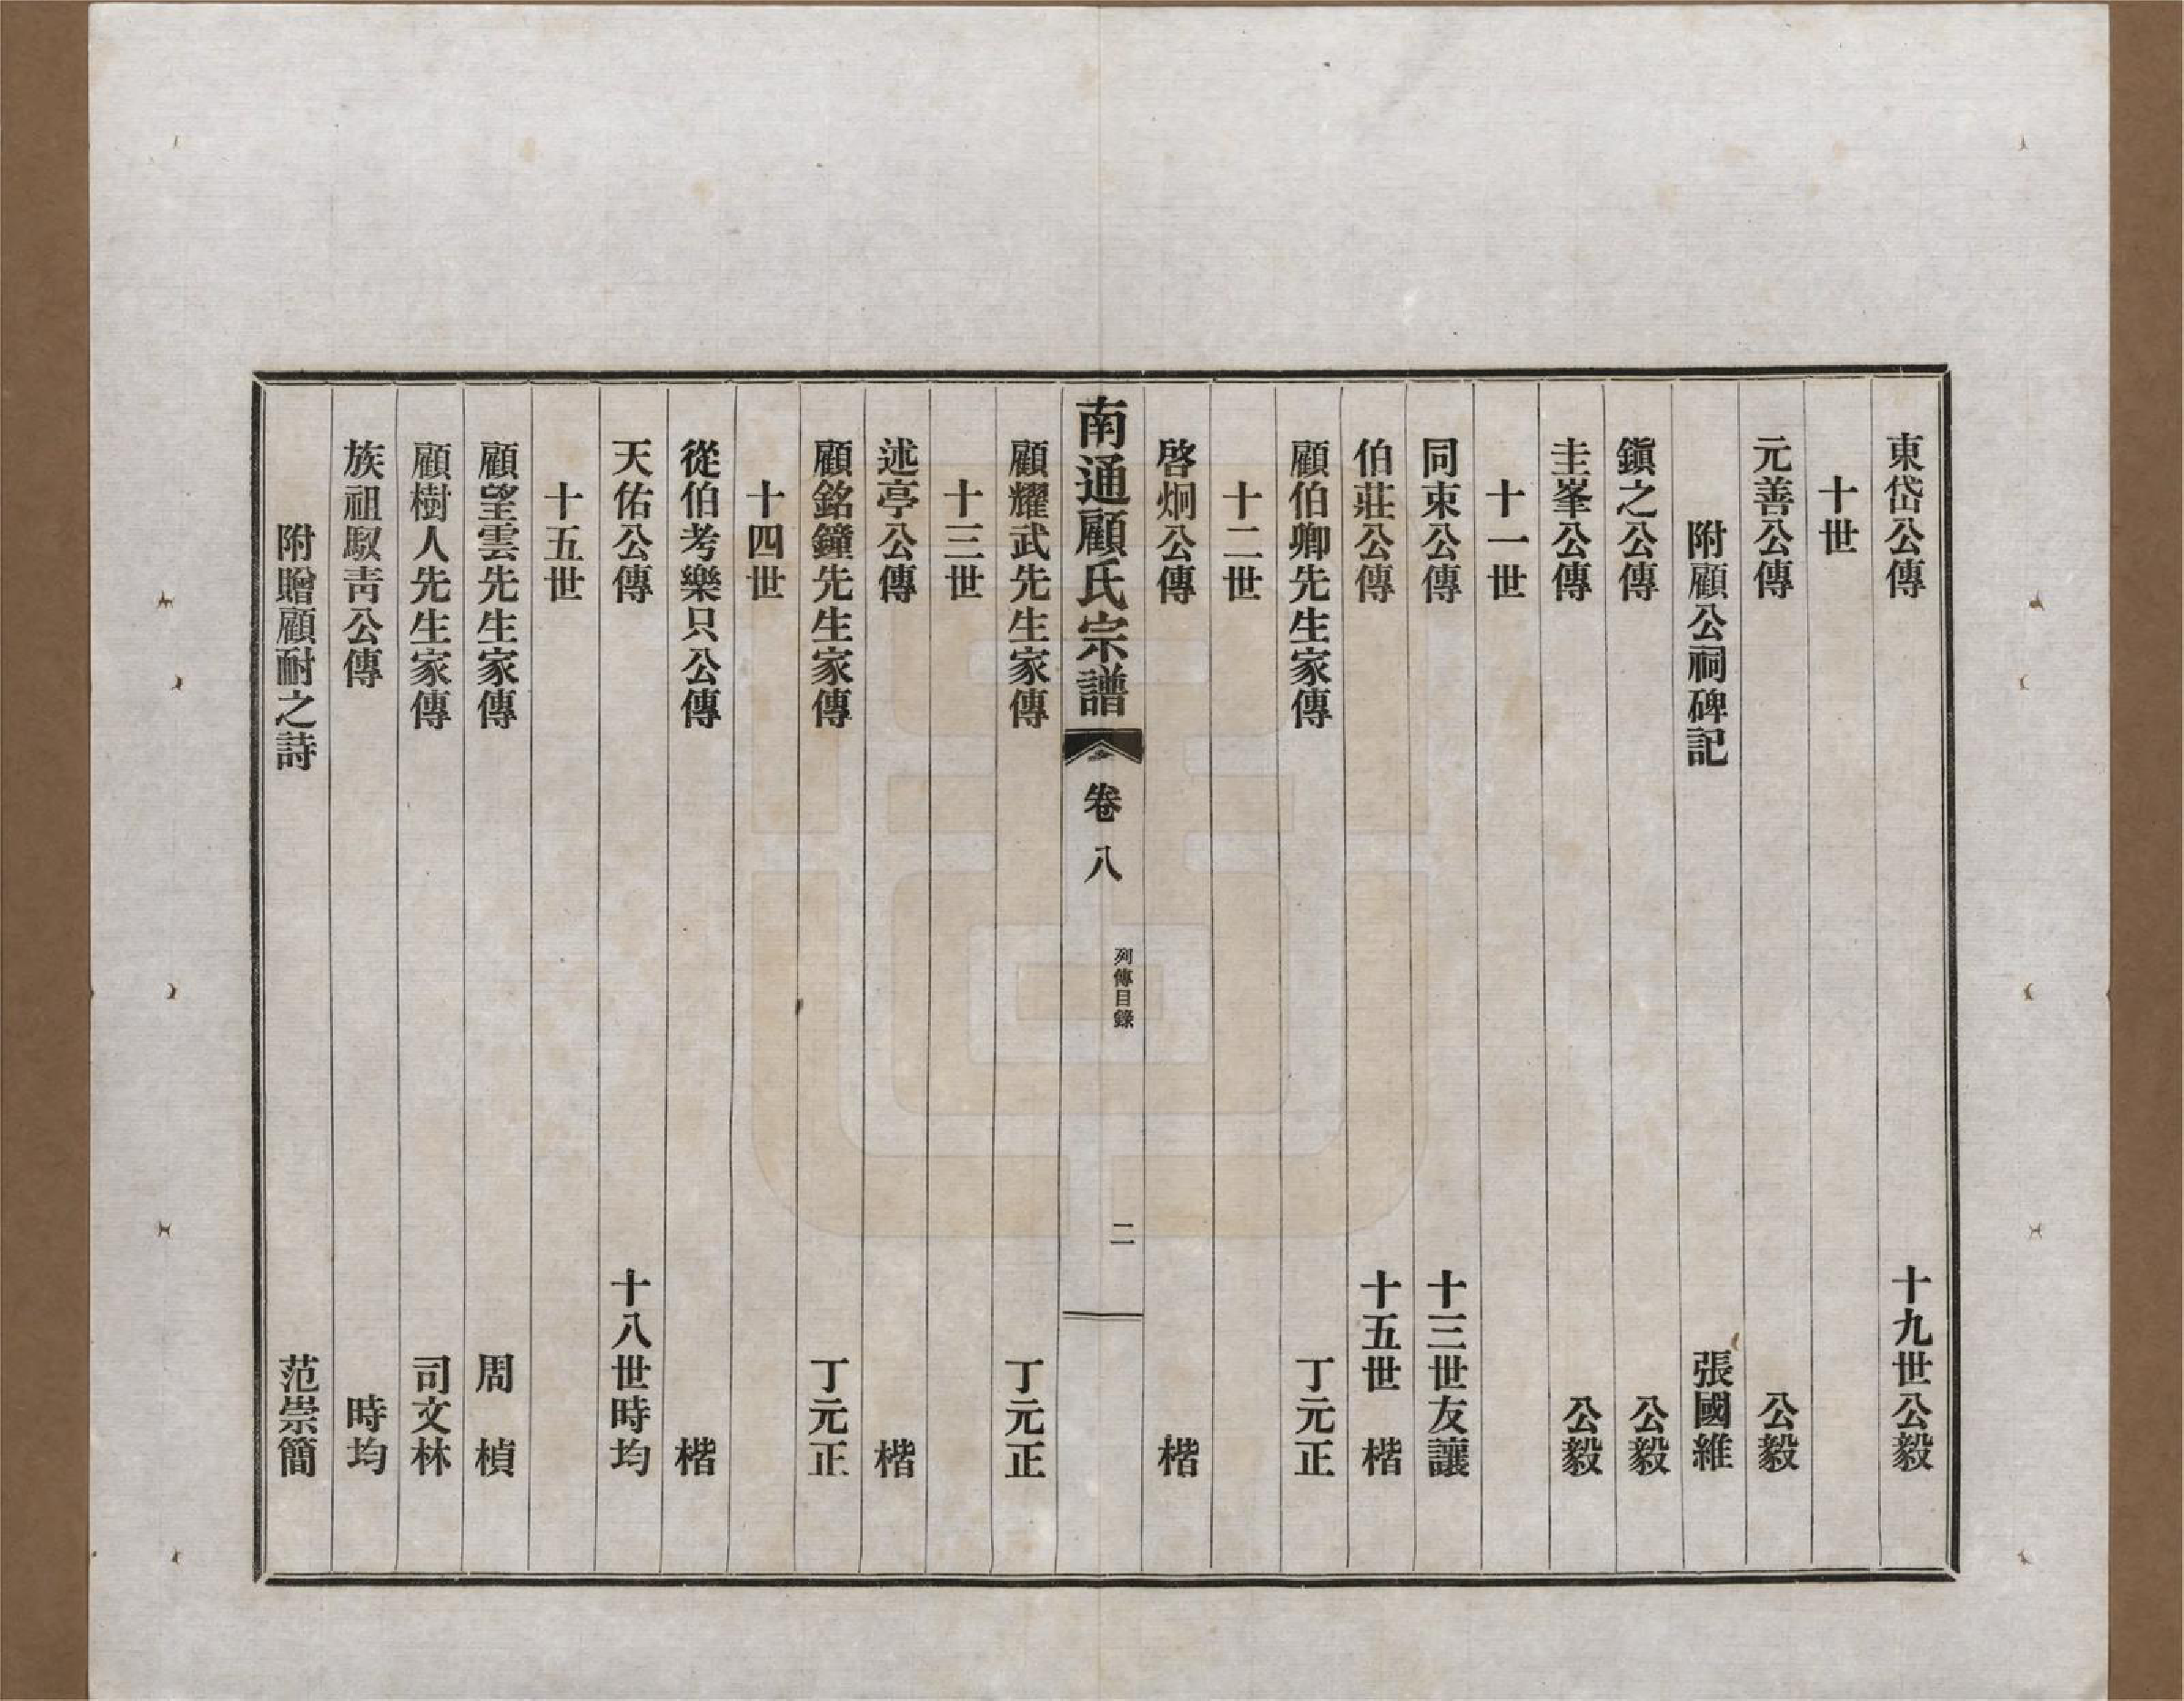 東岱公傳　十九世公毅
十世
元善公傳　公毅
附顧公祠碑記　張國維
鎭之公傳　公毅
圭峯公傳　公毅
十一世
同束公傳　十三世友讓
伯莊公傳　十五世　楷
顧伯卿先生家傳　丁元正
十二世
啓炯公傳　楷
南通顧氏宗譜　卷八　列傳目錄　二
顧耀武先生家傳　丁元正
十三世
述亭公傳　楷
顧銘鐘先生家傳　丁元正
十四世
從伯考樂只公傳　楷
天佑公傳　十八世時均
十五世
顧望雲先生家傳　周　楨
顧樹人先生家傳　司文林
族祖馭靑公傳　時均
附贈顧耐之詩　范崇簡